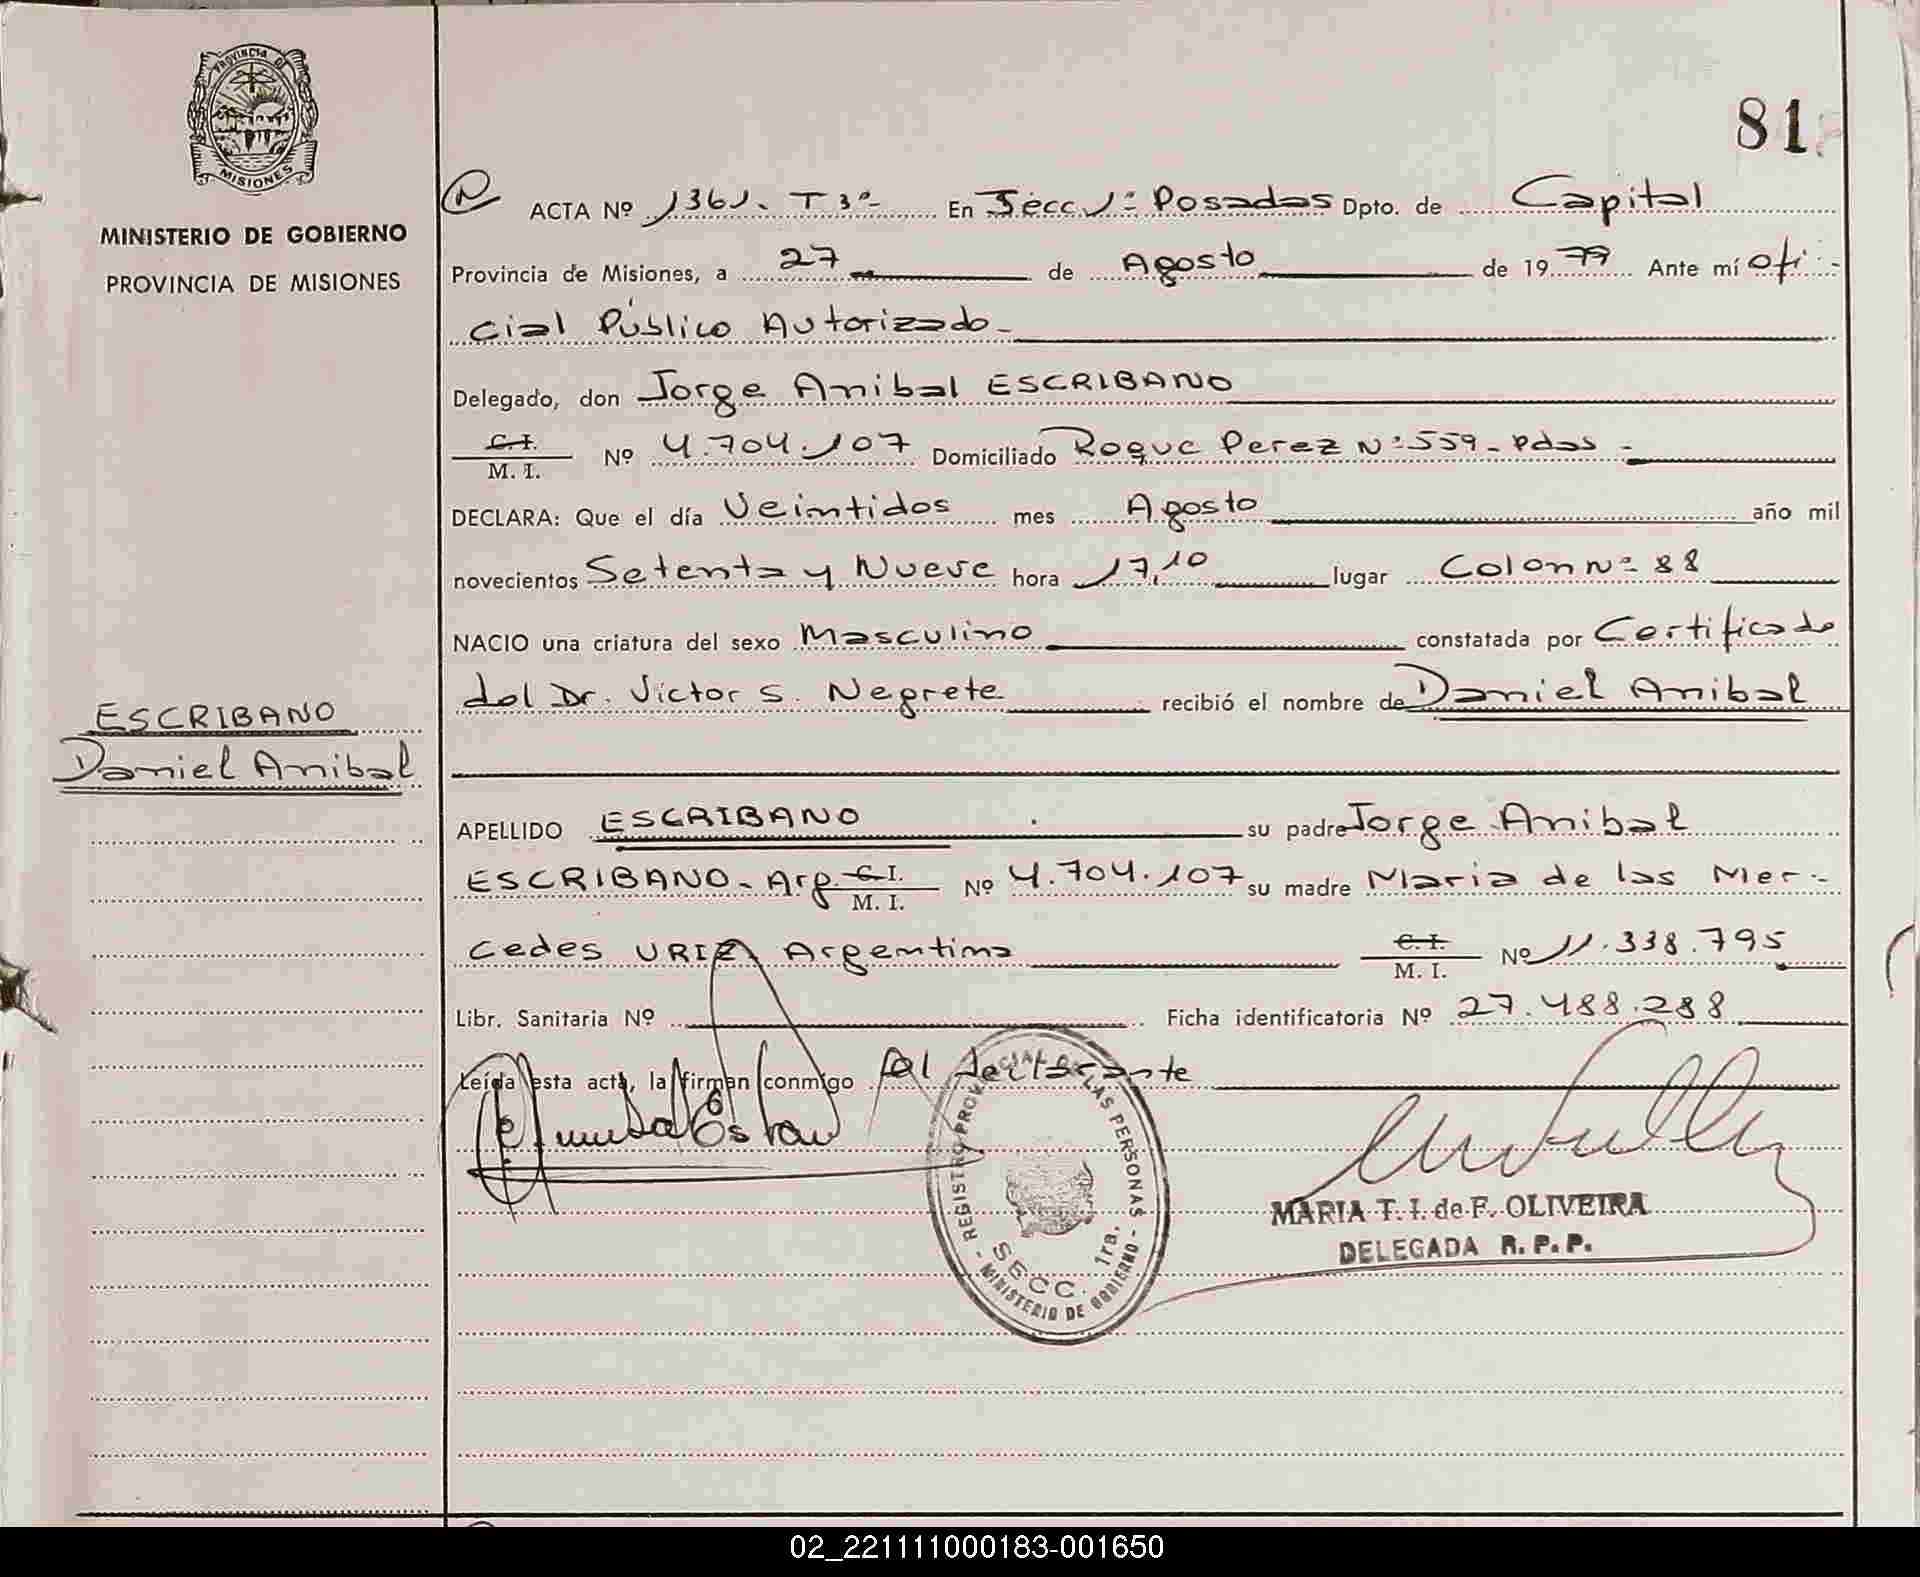 PROVINCIA DE
MISIONES
MINISTERIO DE GOBIERNO
PROVINCIA DE MISIONES
81
N ACTA Nº 1361. T 3º- En Secc 1º Posadas Dpto. de Capital
Provincia de Misiones, a 27 de Agosto de 1979 Ante mí Ofi-
cial Público Autorizado-
Delegado, don Jorge Anibal ESCRIBANO
C. I.
M. I. Nº 4.704.107 Domiciliado Roque Perez Nº 559- Pdas-
DECLARA: Que el día Veimtidos mes Agosto año mil
novecientos Setenta y Nueve hora 17,10 lugar Colon Nº 88
NACIO una criatura del sexo Masculino constatada por Certificado
del Dr. Victor S. Negrete recibió el nombre de Daniel Anibal
ESCRIBANO
Daniel Anibal
APELLIDO ESCRIBANO su padre Jorge Anibal
ESCRIBANO- Arg. C. I.
M. I. Nº 4.704.107 su madre Maria de las Mer-
cedes URIZ, Argentina C. I.
M. I. Nº 11.338.795
Libr. Sanitaria Nº Ficha identificatoria Nº 27.488.288
Leída esta acta, la firman conmigo el declarante
REGISTRO PROVINCIAL DE LAS PERSONAS
- MINISTERIO DE GOBIERNO -
SECC. 1ra.
MARIA T. I. de F. OLIVEIRA
DELEGADA R. P. P.
02_221111000183-001650